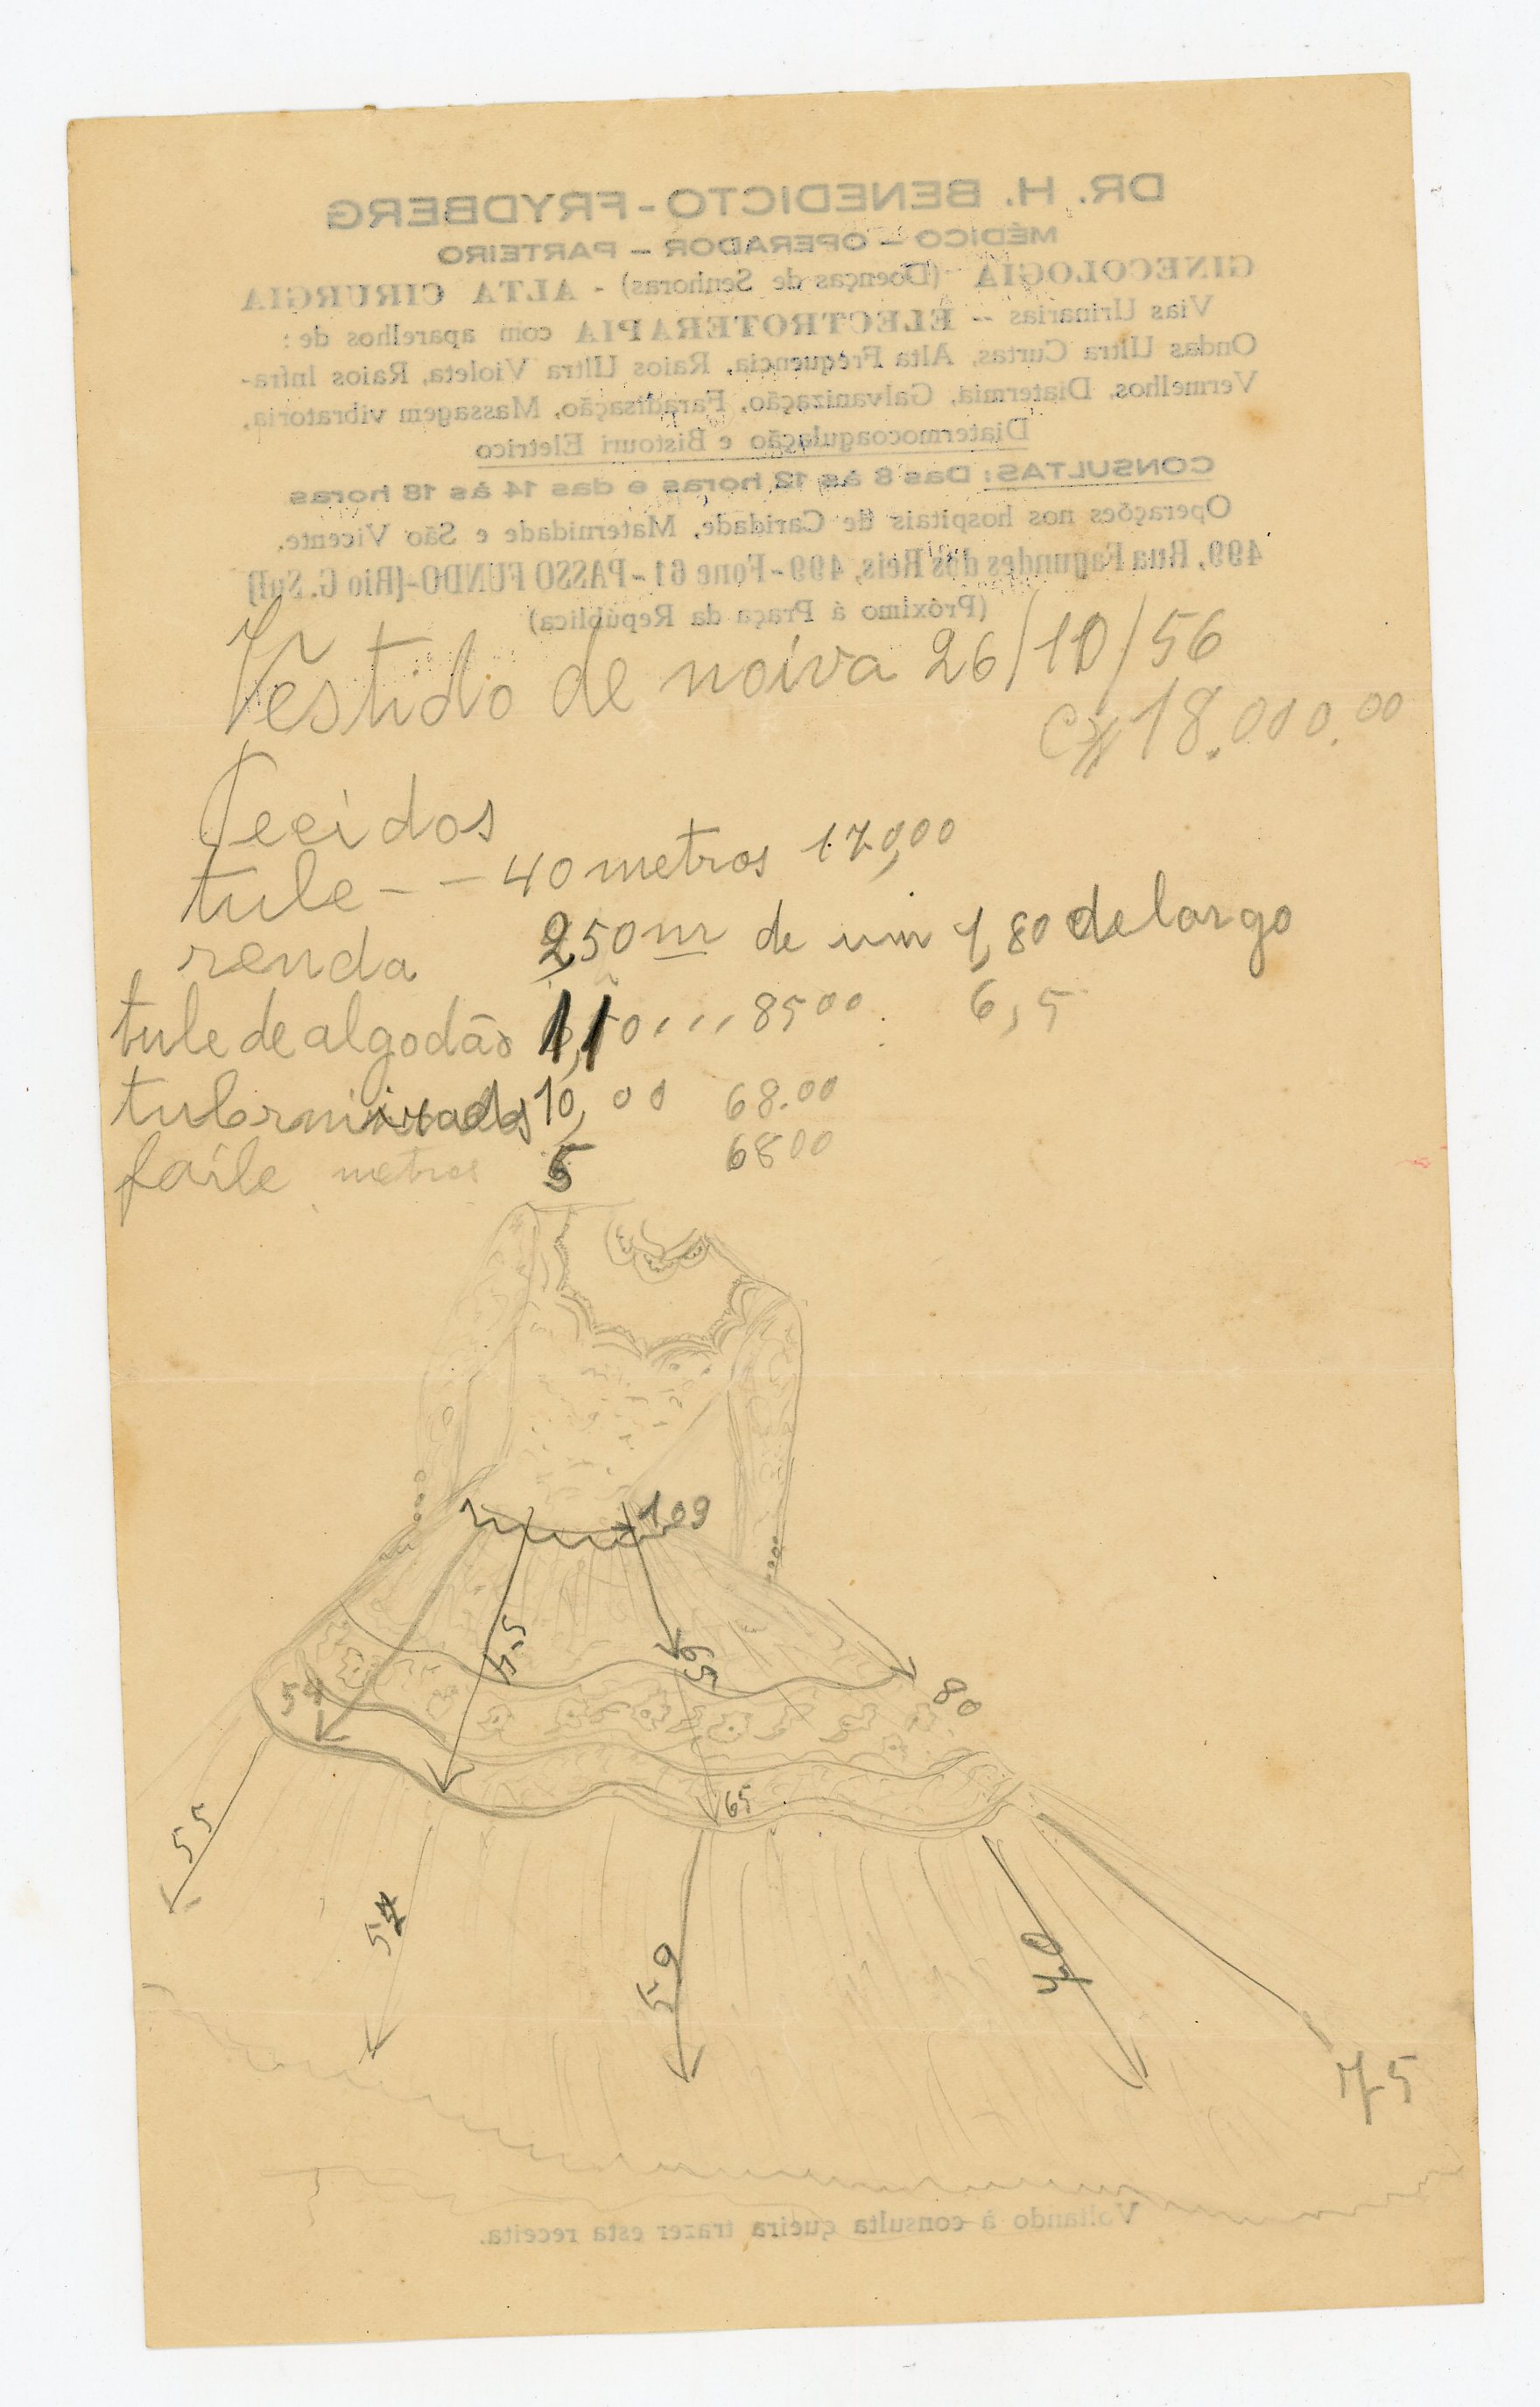 DR. H. BENEDICTO-FRYDBERG
MÉDICO – OPERADOR – PARTEIRO
GINECOLOGIA (Doenças de Senhoras) - ALTA CIRURGIA
Vias Urinarias -- ELECTROTERAPIA com aparelhos de:
Ondas Ultra Curtas, Alta Frequencia, Raios Ultra Violeta, Raios Infra-
Vermelhos, Diatermia, Galvanização, Faradisação, Massagem vibratoria,
Diatermocoagulação e Bistouri Eletrico
CONSULTAS: Das 8 às 12 horas e das 14 às 18 horas
Operações nos hospitais de Caridade, Maternidade e São Vicente.
499, Rua Fagundes dos Reis, 499 - Fone 61 - PASSO FUNDO - (Rio G. Sul)
(Próximo á Praça da República)
Vestido de noiva 26/10/56
Cr$ 18.000.00
Tecidos
tule - - 40 metros 170,00
renda 2,50 m de um 1,80 de largo
tule de algodão 11 85 00 6,5
10,00 68.00
faile metros 5 68 00
109
55
65
54
80
65
55
54
59
70
75
Voltando à consulta queira trazer esta receita.